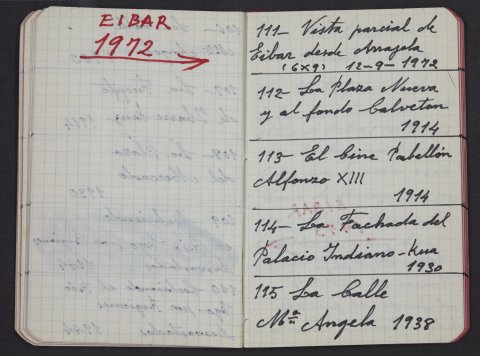 EIBAR
1972
111- Vista parcial de
Eibar desde Arragela
(6x9) 12-9-1972
112- La Plaza Nueva
y al fondo Calveton
1914
113- El Cine Pabellón
Alfonzo XIII
1914
114- La Fachada del
Palacio Indiano-Kua
1930
115 La Calle
Mª Angela 1938